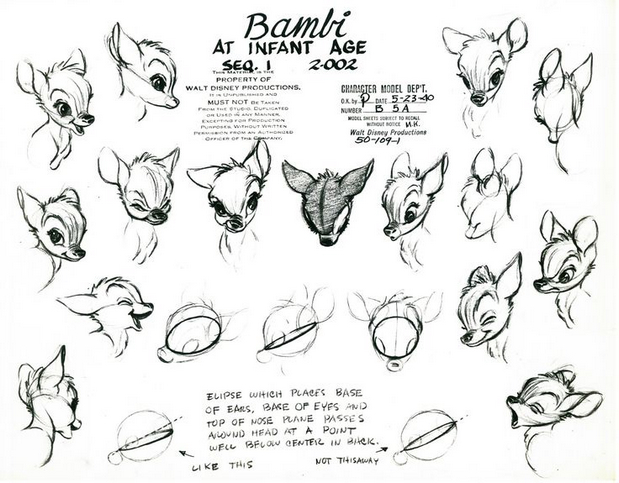 Bambi
AT INFANT AGE
SEQ. 1 2-002
THIS MATERIAL IS THE
PROPERTY OF
WALT DISNEY PRODUCTIONS.
IT IS UNPUBLISHED AND
MUST NOT BE TAKEN
FROM THE STUDIO, DUPLICATED
OR USED IN ANY MANNER,
EXCEPTING FOR PRODUCTION
PURPOSES, WITHOUT WRITTEN
PERMISSION FROM AN AUTHORIZED
OFFICER OF THE COMPANY.
CHARACTER MODEL DEPT.
O.K. by DATE 5-23-40
NUMBER B 5A
MODEL SHEETS SUBJECT TO RECALL
WITHOUT NOTICE
Walt Disney Productions
50-109-1
ELIPSE WHICH PLACES BASE
OF EARS, BASE OF EYES AND
TOP OF NOSE PLANE PASSES
AROUND HEAD AT A POINT
WELL BELOW CENTER IN BACK.
LIKE THIS
NOT THISAWAY